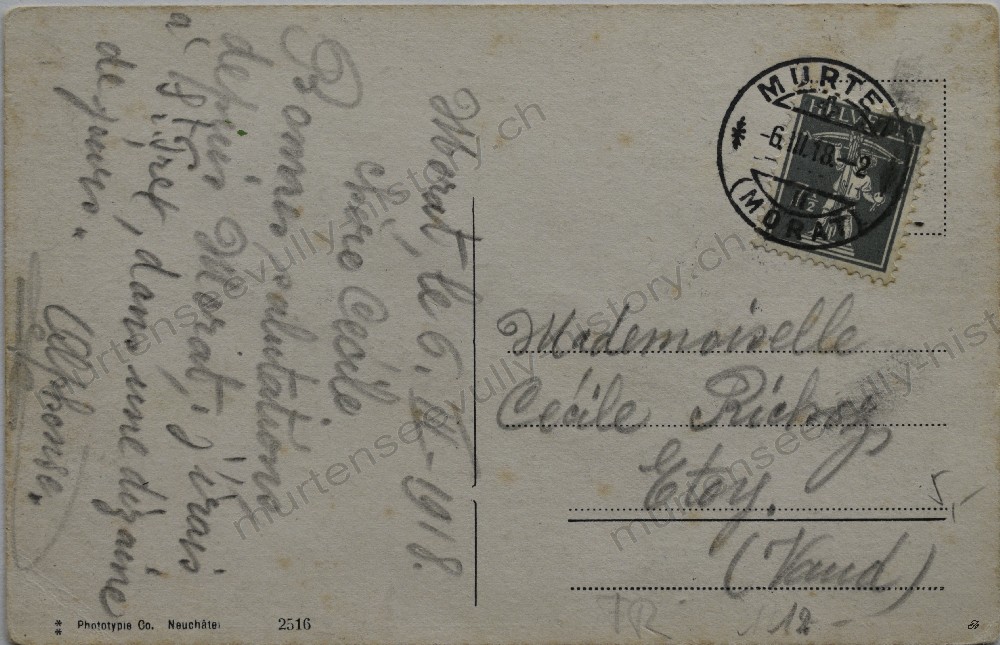 Morat, le 6. III - 1918.
Chère Cécile
Bonnes salutations
depuis Morat, j'irais
à B. Fret, dans une dizaine
de jours.
Alphonse.
MURTEN
-6.III.18.--2
(MORAT)
HELVETIA
Mademoiselle
Cécile
Etoy.
(Vaud)
12 -
** Phototypie Co. Neuchâtel 2516
murtenseevully-history.ch
murtenseevully-history.ch